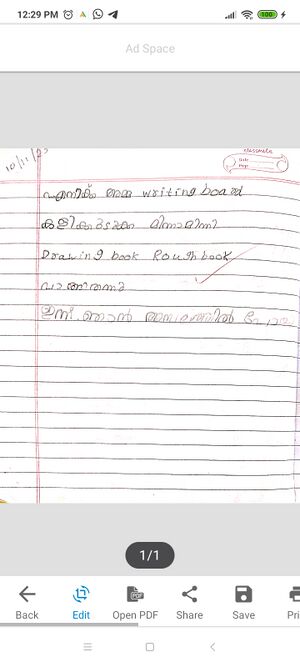 12:29 PM
100
Ad Space
10/11/23
classmate
Date
Page
എനിക്ക് അമ്മ writing board
Drawing book Rough book
വാങ്ങിതന്നു
ഇന്ന് ഞാൻ അമ്പലത്തിൽ പോയി
1/1
Back Edit Open PDF Share Save Pri